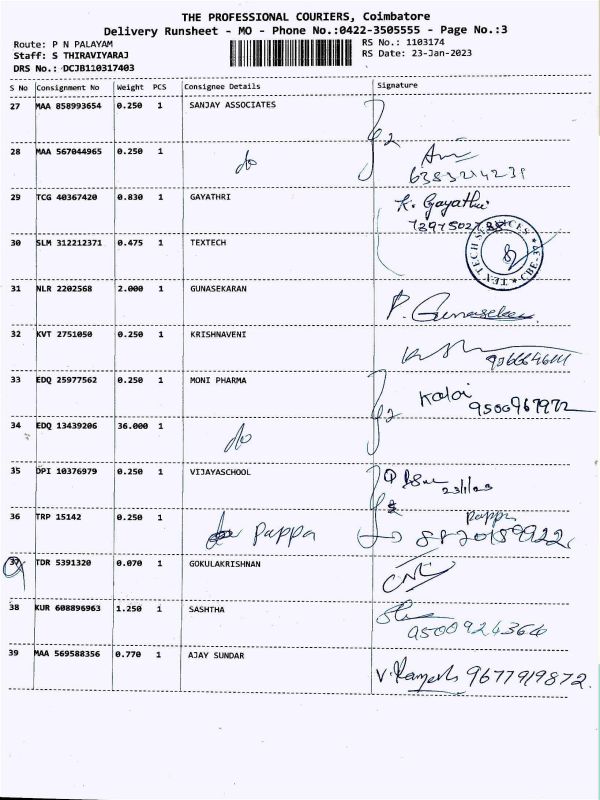 THE PROFESSIONAL COURIERS, Coimbatore
Delivery Runsheet - MO - Phone No.:0422-3505555 - Page No.:3
Route: P N PALAYAM
RS No.: 1103174
Staff: S THIRAVIYARAJ
RS Date: 23-Jan-2023
DRS No.: DCJB110317403
S No Consignment No Weight PCS Consignee Details Signature
27 MAA 858993654 0.250 1 SANJAY ASSOCIATES
28 MAA 567044965 0.250 1 do
6383214231
29 TCG 40367420 0.830 1 GAYATHRI K. Gayathri
30 SLM 312212371 0.475 1 TEXTECH
31 NLR 2202568 2.000 1 GUNASEKARAN P. Gunasekaran
32 KVT 2751050 0.250 1 KRISHNAVENI
33 EDQ 25977562 0.250 1 MONI PHARMA Kalai
9500967972
34 EDQ 13439206 36.000 1 do
35 DPI 10376979 0.250 1 VIJAYASCHOOL
23/1/23
36 TRP 15142 0.250 1 Pappa Pappa
37 TDR 5391320 0.070 1 GOKULAKRISHNAN
38 KUR 608896963 1.250 1 SASHTHA
9500924364
39 MAA 569588356 0.770 1 AJAY SUNDAR V. Ramesh 9677919872.